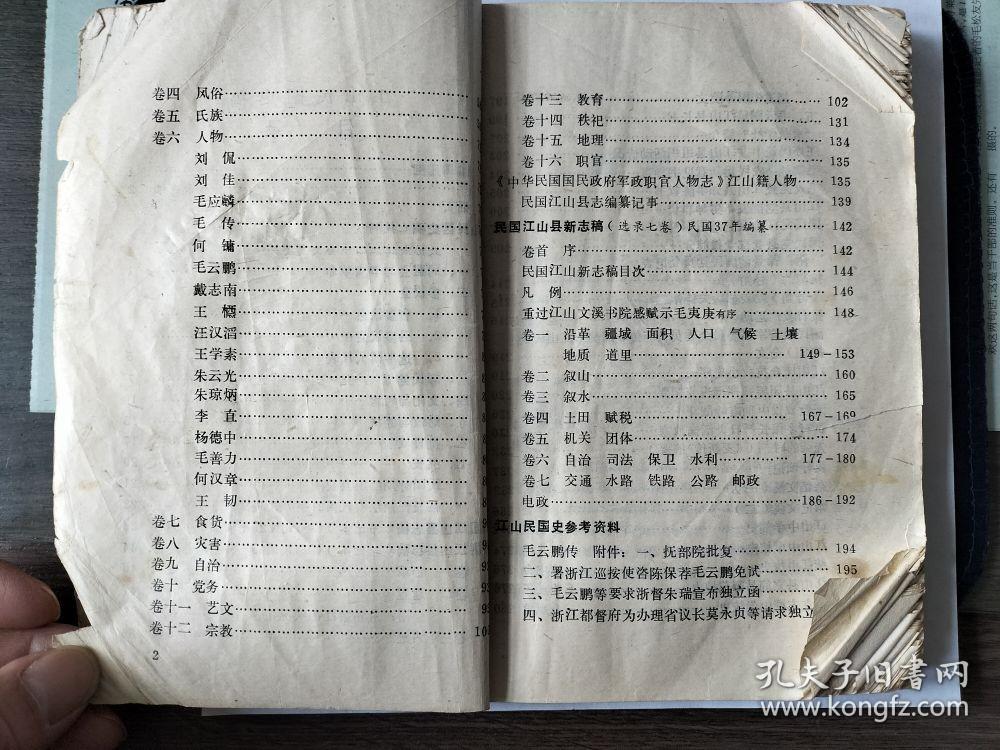 卷四 风俗
卷五 氏族
卷六 人物
刘 侃
刘 佳
毛应麟
毛 传
何 镛
毛云鹏
戴志南
王
汪汉滔
王学素
朱云光
朱琼炳
李 直
杨德中
毛善力
何汉章
王 韧
卷七 食货
卷八 灾害
卷九 自治
卷十 党务
卷十一 艺文
卷十二 宗教
2
卷十三 教育 102
卷十四 秩祀 131
卷十五 地理 134
卷十六 职官 135
《中华民国国民政府军政职官人物志》江山籍人物 135
民国江山县志编纂记事 139
民国江山县新志稿（选录七卷）民国37年编纂 142
卷首 序 142
民国江山新志稿目次 144
凡 例 146
重过江山文溪书院感赋示毛夷庚有序 148
卷一 沿革 疆域 面积 人口 气候 土壤
地质 道里 149-153
卷二 叙山 160
卷三 叙水 165
卷四 土田 赋税 167-169
卷五 机关 团体 174
卷六 自治 司法 保卫 水利 177-180
卷七 交通 水路 铁路 公路 邮政
电政 186-192
江山民国史参考资料
毛云鹏传 附件：一、抚部院批复 194
二、署浙江巡按使咨陈保荐毛云鹏免试 195
三、毛云鹏等要求浙督朱瑞宣布独立函
四、浙江都督府为办理省议长莫永贞等请求独立
孔夫子旧书网
www.kongfz.com